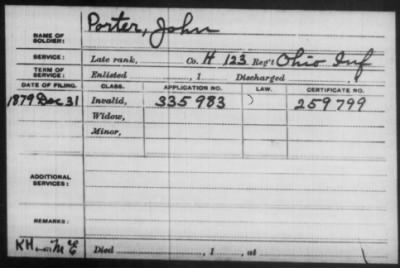 Porter, John
NAME OF SOLDIER:
SERVICE: Late rank, Co. H 123 Reg't Ohio Inf
TERM OF SERVICE: Enlisted , 1 Discharged
DATE OF FILING. CLASS. APPLICATION NO. LAW. CERTIFICATE NO.
1879 Dec 31 Invalid, 335983 259799
Widow,
Minor,
ADDITIONAL SERVICES:
REMARKS:
KH
Died , 1 , at